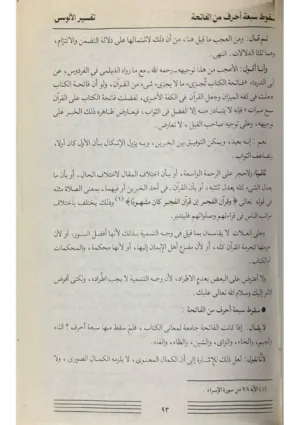 سقوط سبعة أحرف من الفاتحة
تفسير الألوسي
ثم قال : ومن العجب ما قيل هنا ، من أن ذلك لاشتمالها على دلالة التضمن والالتزام ،
وهما ثلثا الدلالات . انتهى .
وأنا أقول : الأعجب من هذا توجيهه ـ رحمه الله ـ مع ما رواه الديلمي في الفردوس ، عن
أبي الدرداء «فاتحة الكتاب تُجزىء ما لا يجزى شيء من القرآن ، ولو أن فاتحة الكتاب
جعلت في كفة الميزان وجعل القرآن في الكفة الأخرى ، لفضلت فاتحة الكتاب على القرآن
سبع مرات» فإنه لا يتبادر منه إلا الفضل في الثواب ، فيعارض ظاهره ذلك الخبر على
توجيهه ، وعلى توجيه صاحب القيل ، لا تعارض .
نعم : إنه بعيد ، ويمكن التوفيق بين الخبرين ، وبه يزول الإشكال بأن الأول كان أولا ،
وتضاعف الثواب .
ثانيا : ولا حجر على الرحمة الواسعة ، أو بأن اختلاف المقال لاختلاف الحال ، أو بأن ما
يعدل الشيء كله يعدل ثلثيه ، أو بأن القرآن ـ في أحد الخبرين أو فيهما ـ بمعنى الصلاة مثله
في قوله تعالى ﴿وقرآن الفجر إن قرآن الفجر كان مشهودًا﴾ (١) وذلك يختلف باختلاف
مراتب الناس في قراءتهم وصلواتهم فليتدبر .
وعلى العلات لا يقاسان بما قيل في وجه التسمية بذلك لأنها أفضل السور ، أو لأن
حرمتها كحرمة القرآن كله ، أو لأن مفزع أهل الإيمان إليها ، أو لأنها محكمة ، والمحكمات
أم الكتاب .
ولا أعترض على البعض بعدم الاطراد ، لأن وجه التسمية لا يجب اطراده ، ولكني أفوض
الأمر إليك وسلام الله تعالى عليك .
● سقوط سبعة أحرف من الفاتحة :
لا يقال . إذا كانت الفاتحة جامعة لمعاني الكتاب ، فلم سقط منها سبعة أحرف ؟ الثاء
والجيم ، والخاء ، والزاى ، والشين ، والظاء ، والفاء .
لأنا نقول : لعل ذلك للإشارة إلى أن الكمال المعنوى ، لا يلزمه الكمال الصورى ، ولا
(١) الآية ٧٨ من سورة الإسراء .
٩٣